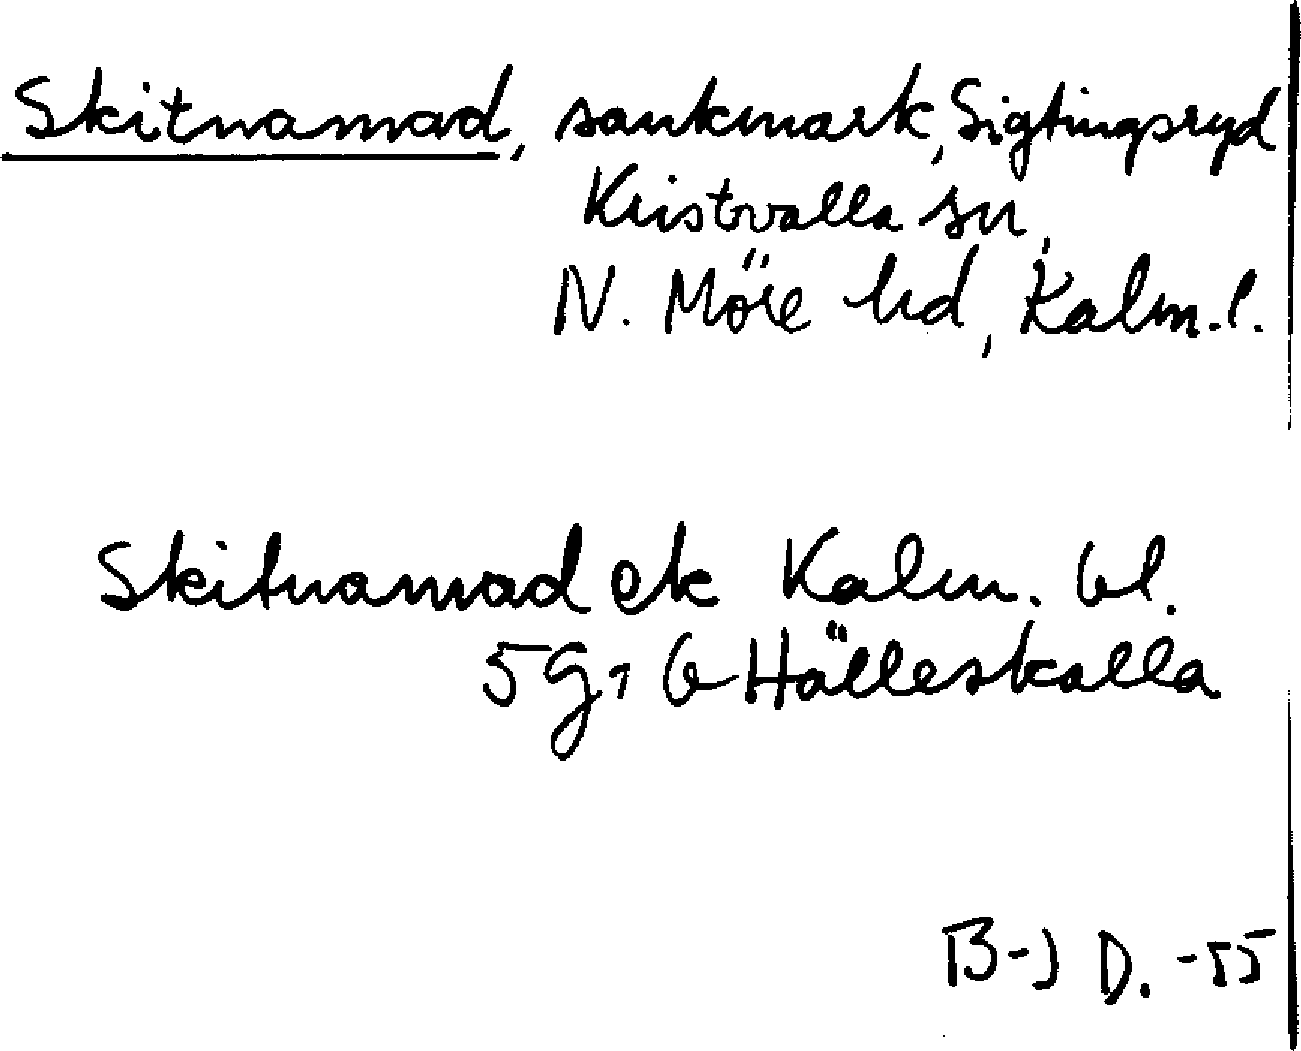 Skitnamad, sankmark, Sigtingsryd
Kristvalla sn,
N. Möre hd, Kalm. l.
Skitnamad ek Kalm. bl.
5 g, 6 Hälleskalla
B-J D. -55